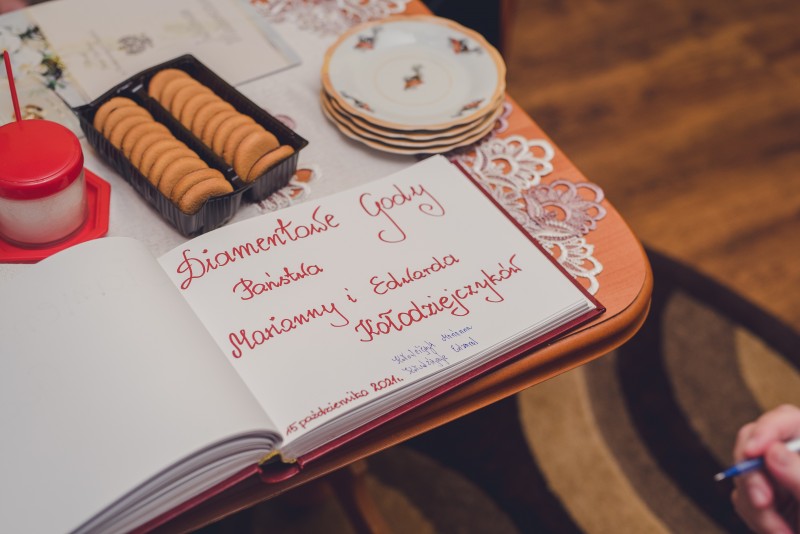 Diamentowe Gody
Państwa
Marianny i Edwarda
Kołodziejczyków
Kołodziejczyk Marianna
Kołodziejczyk Edward
15 października 2021r.